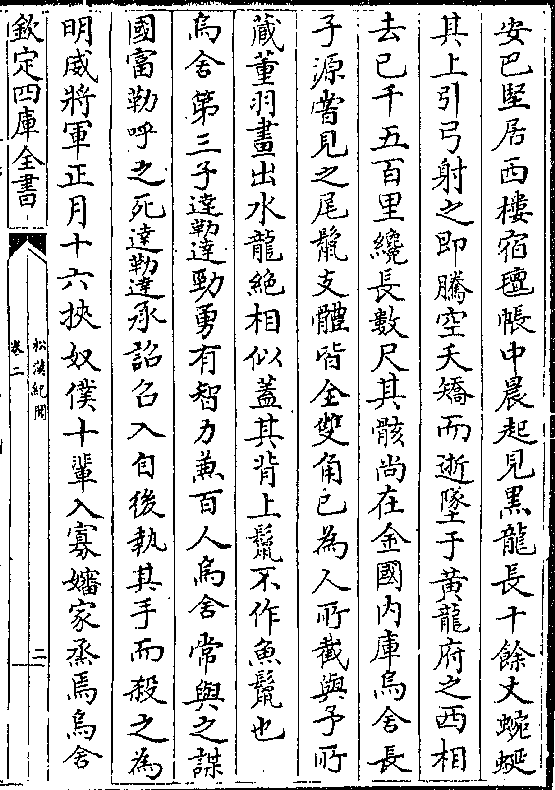 安巴堅居西樓宿氊帳中晨起見黒龍長十餘丈蜿蜒
其上引弓射之即騰空夭矯而逝墜于黃龍府之西相
去已千五百里纔長數尺其骸尚在金國内庫烏舍長
子源嘗見之尾鬛支體皆全雙角已為人所截與予所
藏董羽畫出水龍絶相似蓋其背上鬛不作魚鬛也
烏舍第三子達勒達勁勇有智力兼百人烏舍常與之謀
國富勒呼之死達勒達承詔召入自後執其手而殺之為
明威將軍正月十六挾奴僕十輩入寡嬸家烝焉烏舍
欽定四庫全書
松漠紀聞
卷二
二